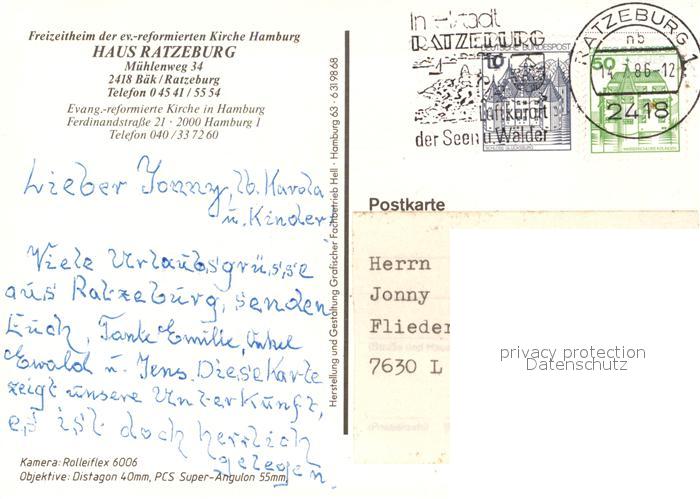 Freizeitheim der ev.-reformierten Kirche Hamburg
HAUS RATZEBURG
Mühlenweg 34
2418 Bäk / Ratzeburg
Telefon 0 45 41 / 55 54
Evang.-reformierte Kirche in Hamburg
Ferdinandstraße 21 · 2000 Hamburg 1
Telefon 040 / 33 72 60
Lieber Jonny, lb. Karola
u. Kinder
Viele Urlaubsgrüsse
aus Ratzeburg, senden
Euch, Tante Emilie, Onkel
Ewald u. Jens. Diese Karte
zeigt unsere Unterkunft,
es ist doch herrlich
gelegen.
Kamera: Rolleiflex 6006
Objektive: Distagon 40mm, PCS Super-Angulon 55mm
Herstellung und Gestaltung Grafischer Fachbetrieb Hell · Hamburg 63 · 6 31 98 68
Inselstadt
RATZEBURG
Luftkurort
der Seen u. Wälder
DEUTSCHE BUNDESPOST
10
SCHLOSS GLÜCKSBURG
50
RATZEBURG 1
nb
86-12
2418
Postkarte
Herrn
Jonny
Flieder
7630 L
privacy protection
Datenschutz